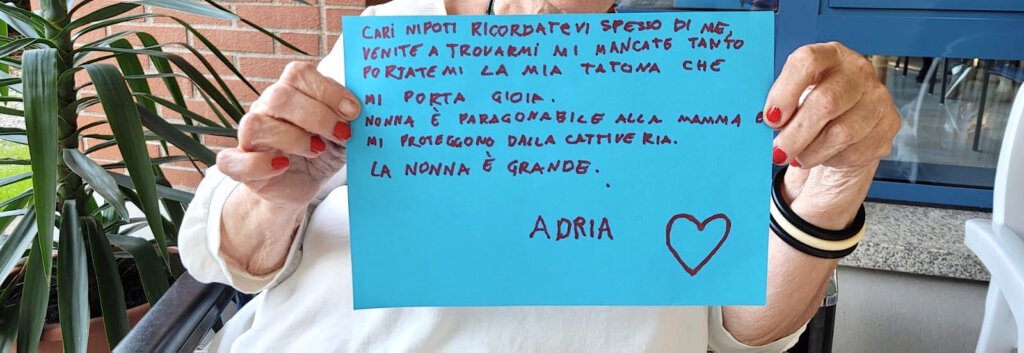 CARI NIPOTI RICORDATEVI SPESSO DI ME,
VENITE A TROVARMI MI MANCATE TANTO
PORTATEMI LA MIA TATONA CHE
MI PORTA GIOIA.
NONNA È PARAGONABILE ALLA MAMMA E
MI PROTEGGONO DALLA CATTIVERIA.
LA NONNA È GRANDE.
ADRIA